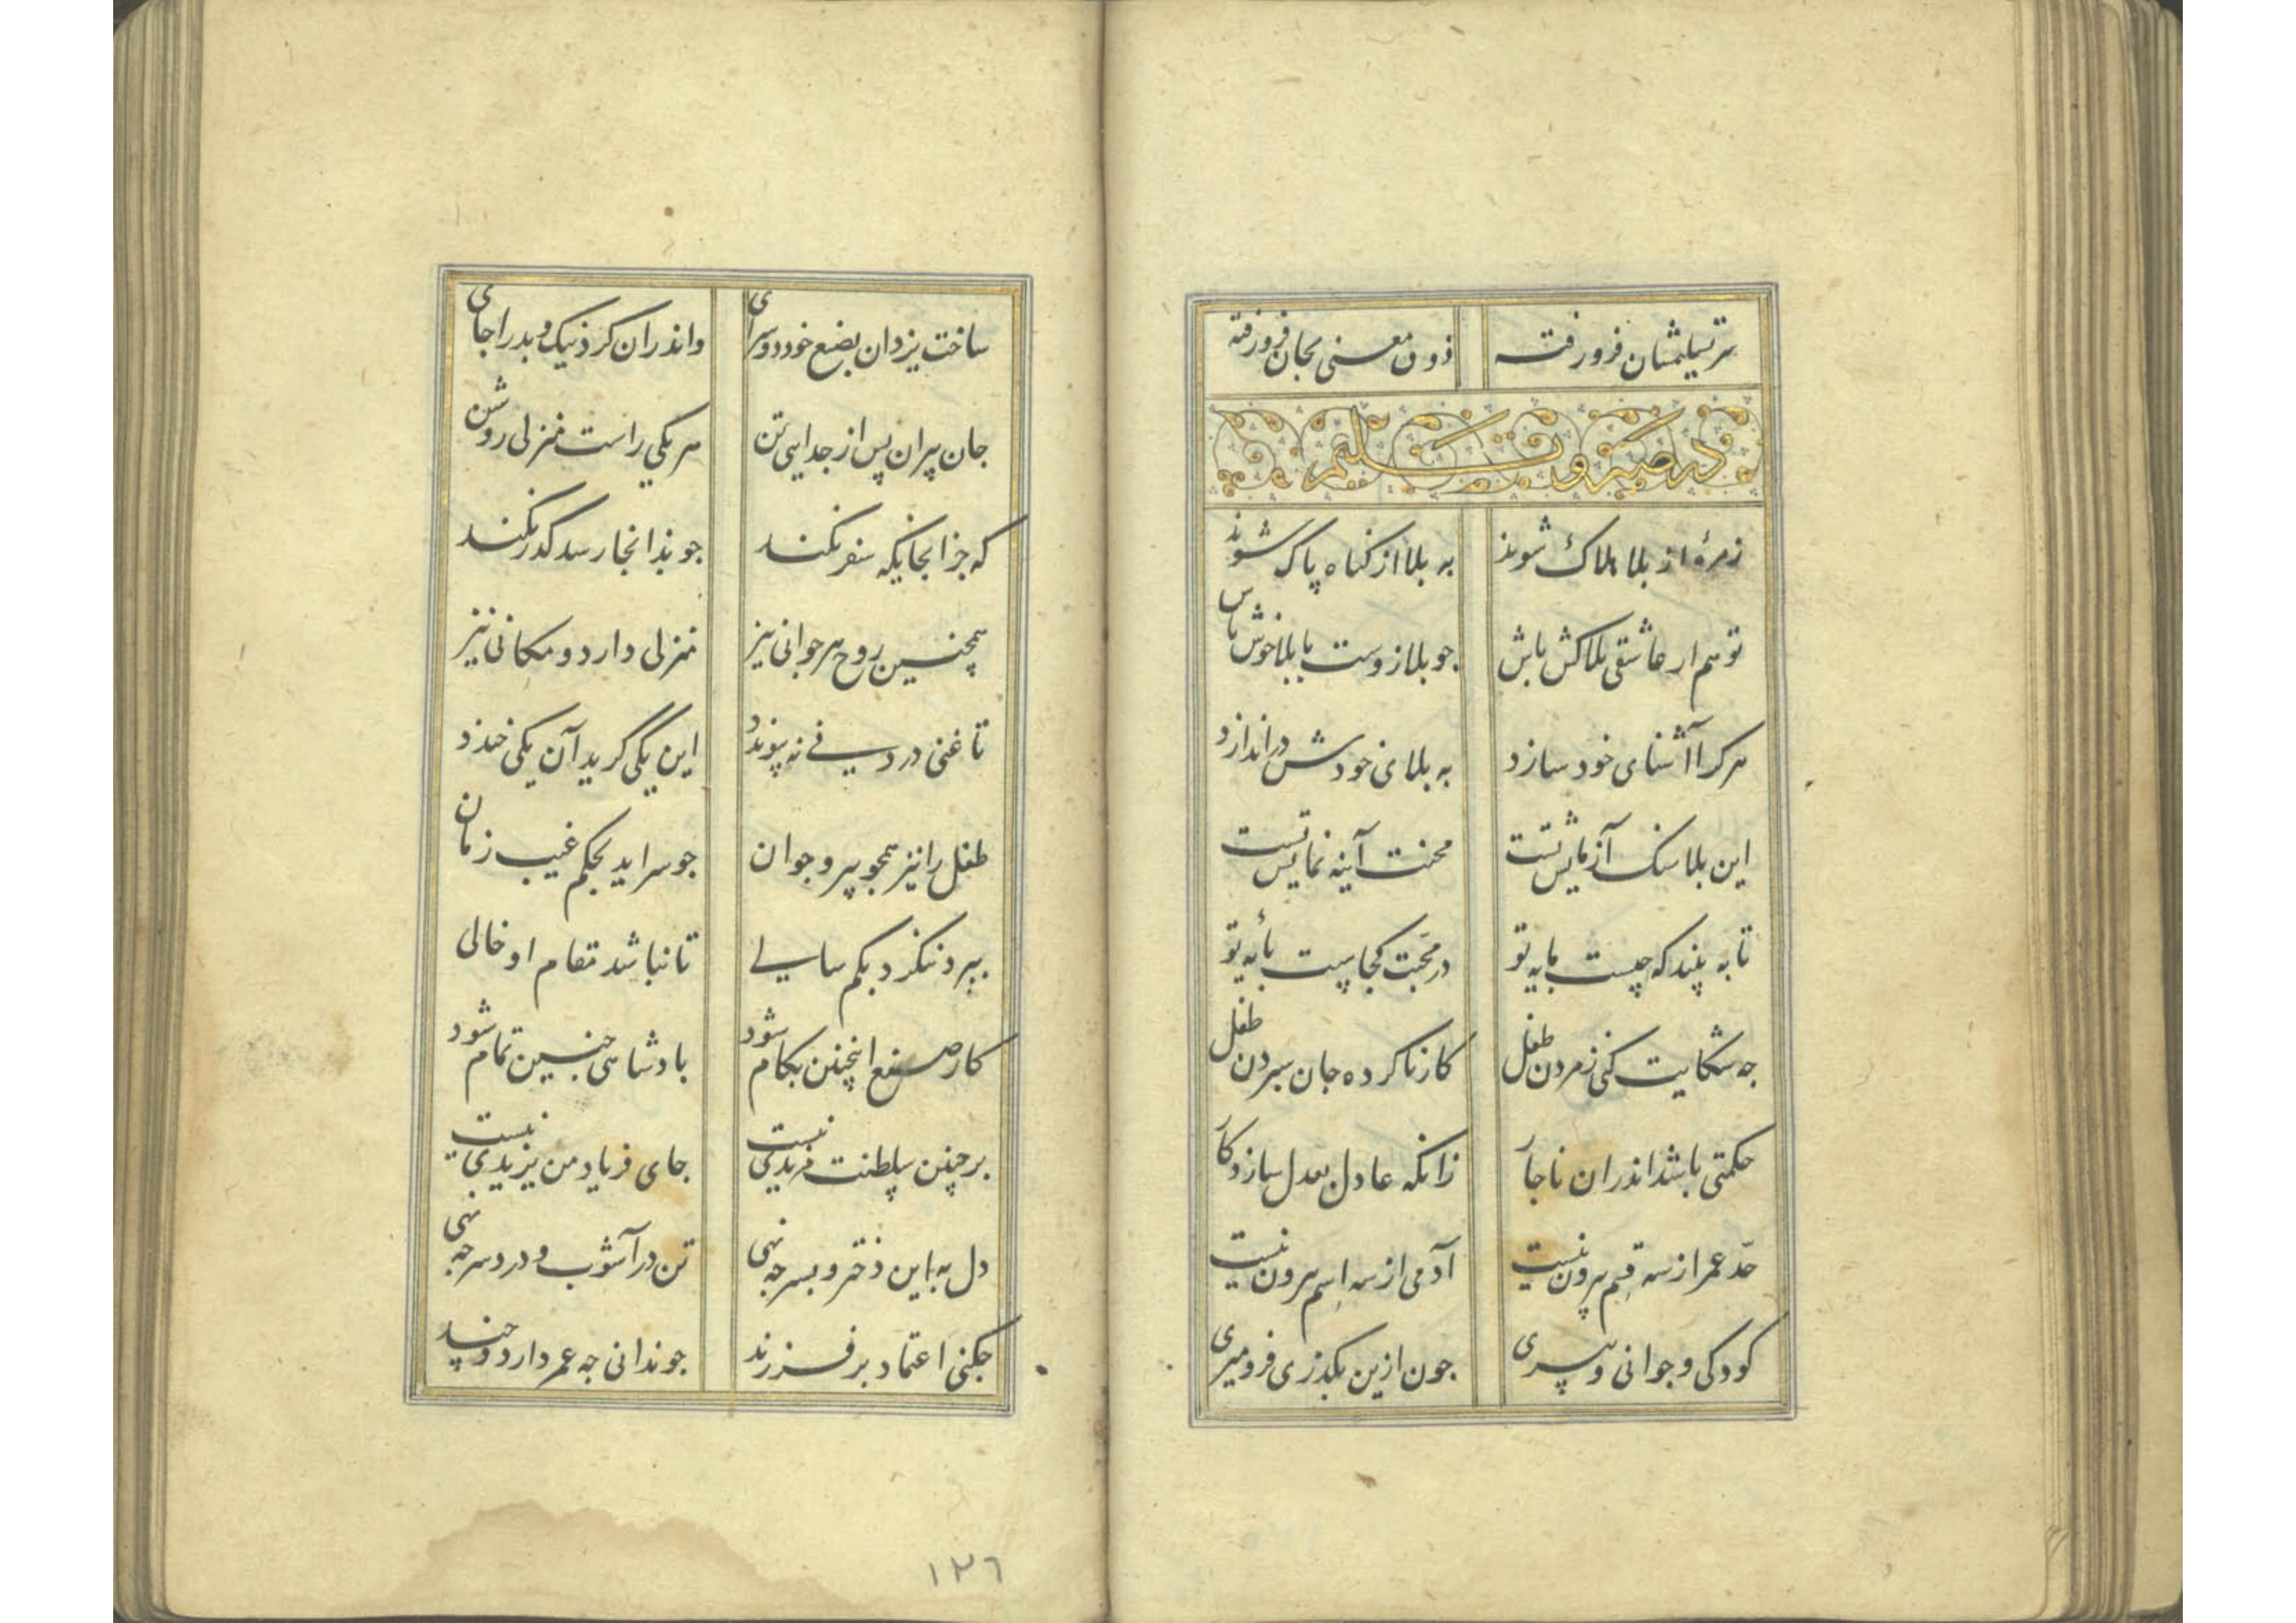 سر تسلیمشان فرو رفته ذوق معنی بجان فرو رفته
در صبر و تسلیم
زمرهٔ از بلا هلاک شوند به بلا از کناه پاک شوند
تو هم ار عاشقی بلاکش باش جو بلا زوست با بلا خوش باش
هر کرا آشنای خود سازد به بلای خودش در اندازد
این بلا سنک آزمایش تست محنت آینه نمایش تست
تا به بیند که چیست مایه تو در محبت کجاست پایه تو
جه شکایت کنی ز مردن طفل کار ناکرده جان سپردن طفل
حکمتی باشد اندران ناجار زانکه عادل بعدل سازد کار
حد عمر از سه قسم بیرون نیست آدمی از سه اسم بیرون نیست
کودکی و جوانی و پیری جون ازین بکذری فرو میری
ساخت یزدان بصنع خود دو سرای واندران کرد نیک و بد را جای
جان پیران پس از جدایی تن هر یکی راست منزلی روشن
که جز آنجایکه سفر نکند جو بدانجا رسد کذر نکند
همچنین روح هر جوانی نیز منزلی دارد و مکانی نیز
تا غنی در دنی نه پیوندد این یکی گرید آن یکی خندد
طفل را نیز همجو پیر و جوان جو سرآید بحکم غیب زمان
ببرد ننکرد بکم سالی تا نباشد مقام او خالی
کار صنع اینچنین بکام شود بادشاهی جنین تمام شود
بر چنین سلطنت مزیدی نیست جای فریاد من یزیدی نیست
دل به این دختر و بسر جه نهی تن در آشوب و درد سر جه نهی
جکنی اعتماد بر فرزند جو ندانی جه عمر دارد و چند
۱۲٦